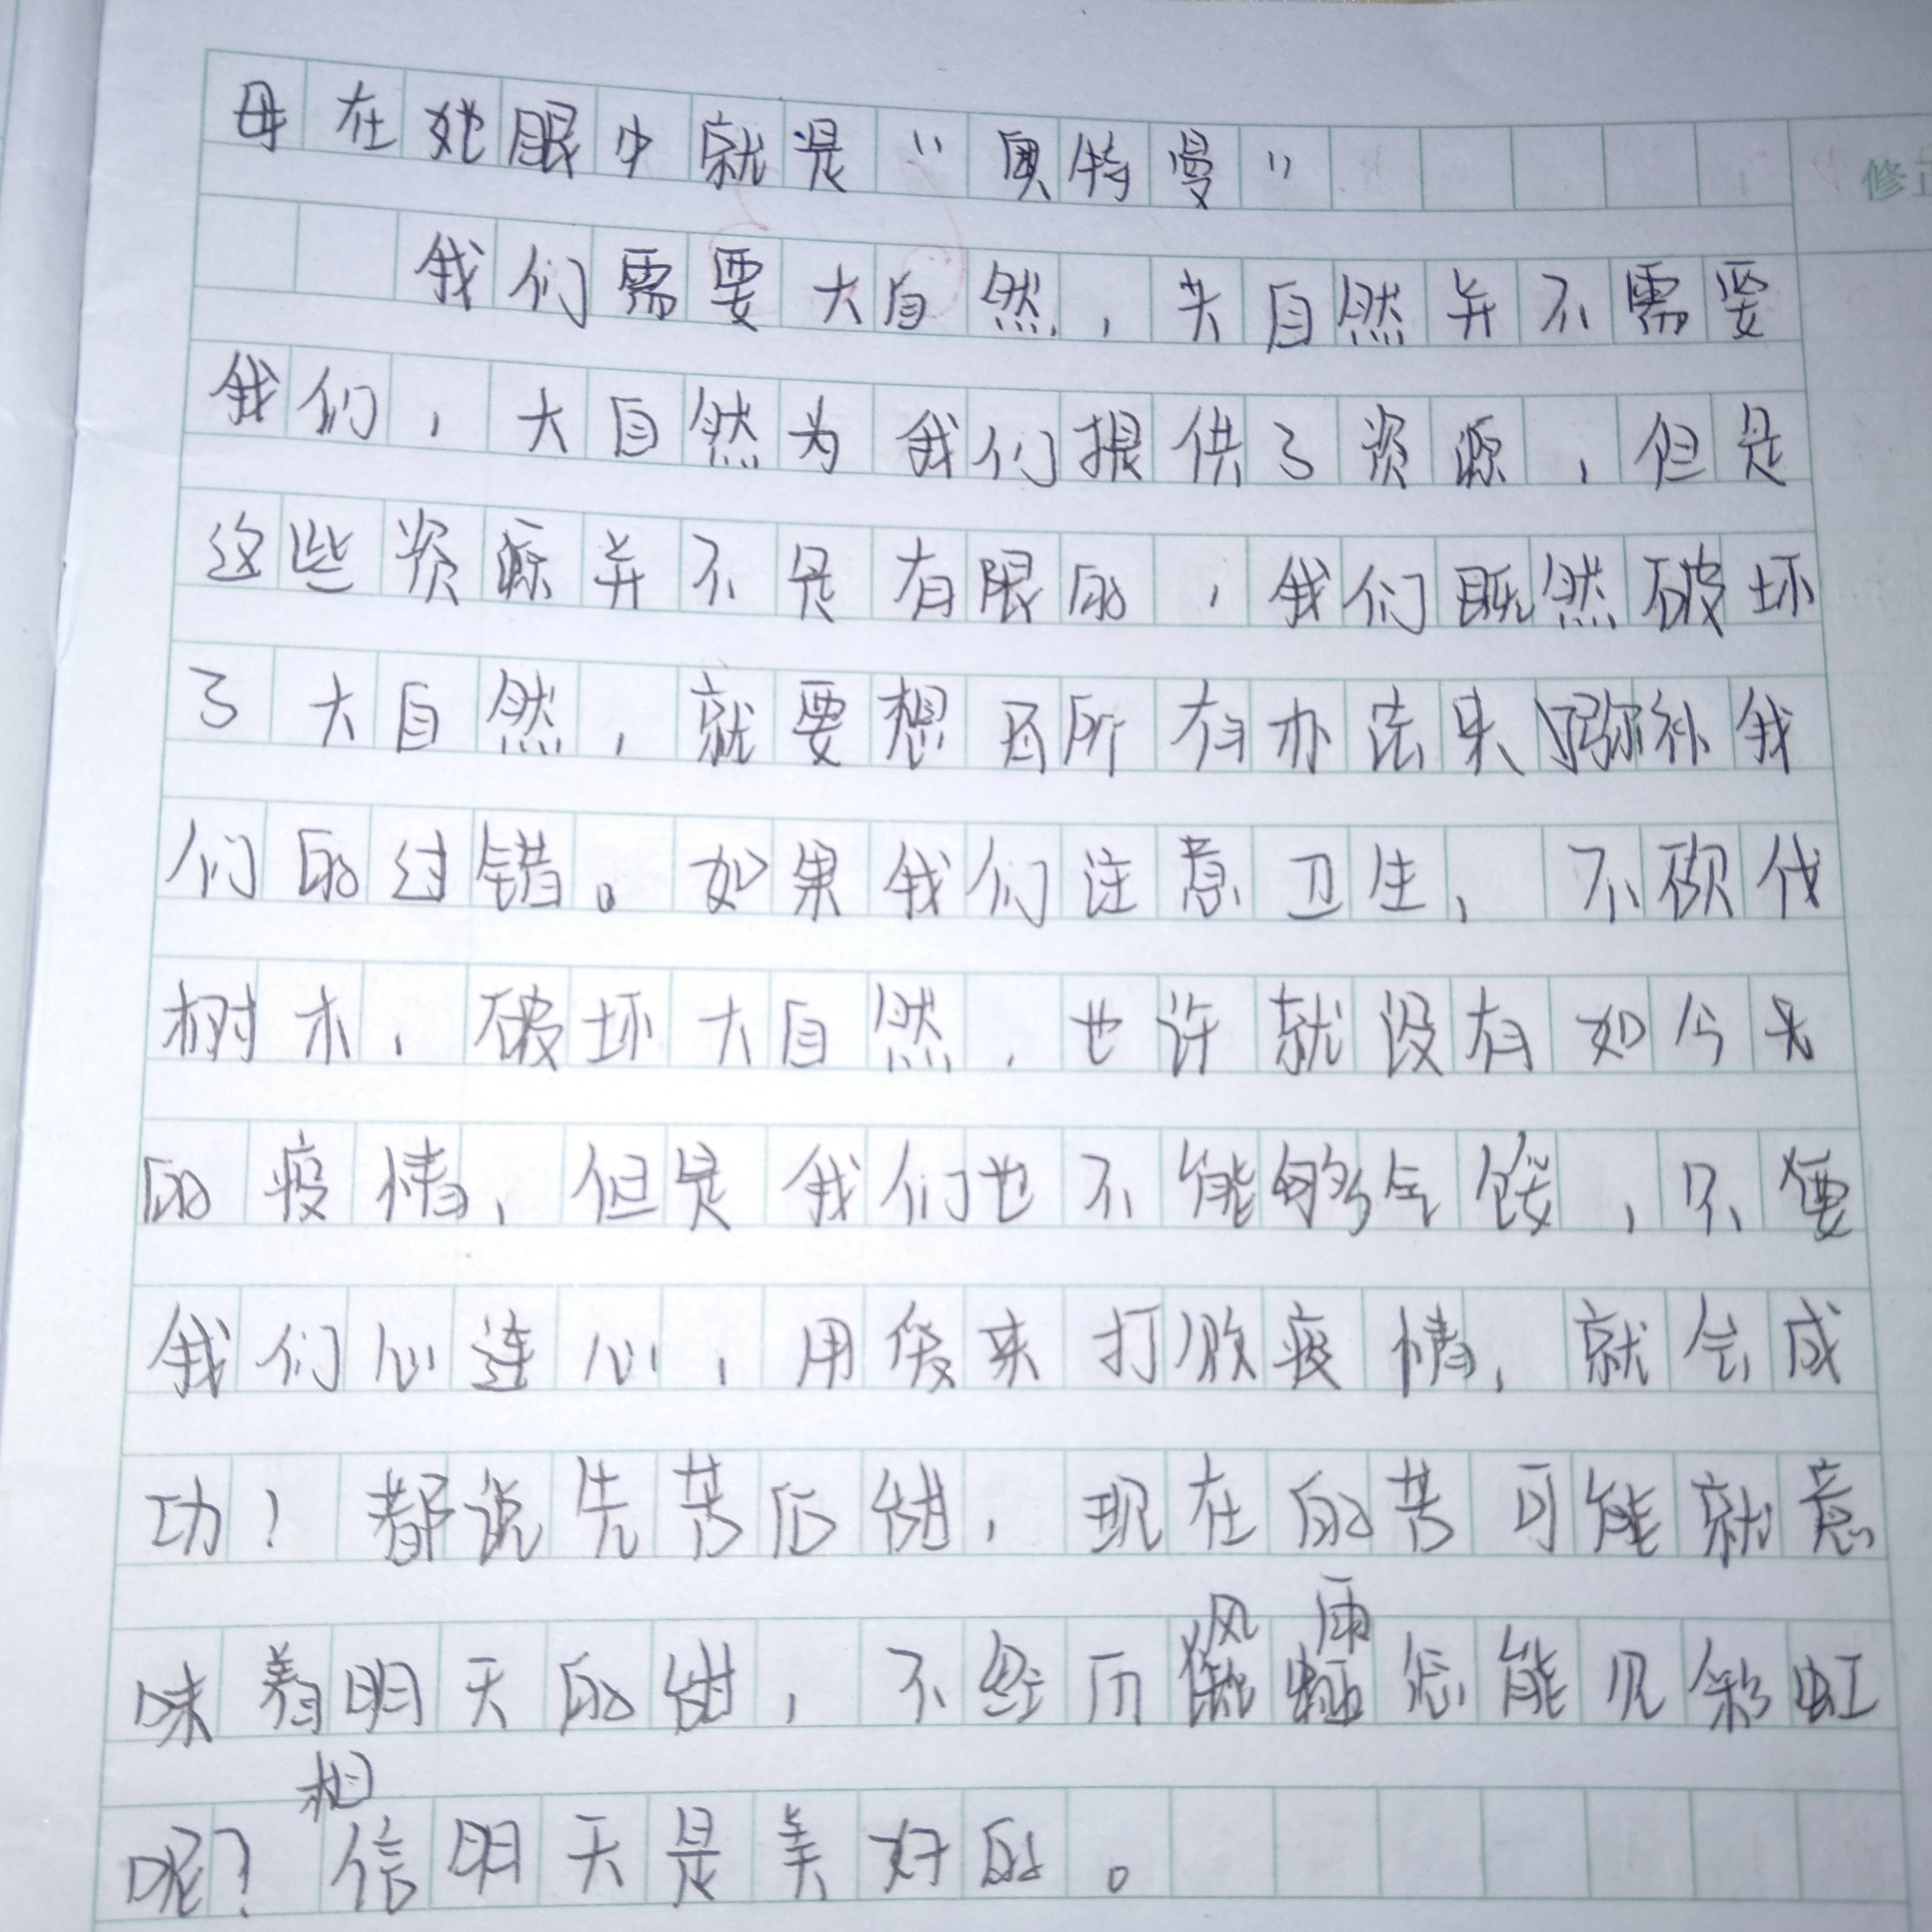 母在她眼中就是“奥特曼”
修正
我们需要大自然，大自然并不需要
我们，大自然为我们提供了资源，但是
这些资源并不是有限的，我们既然破坏
了大自然，就要想尽所有办法来弥补我
们的过错。如果我们注意卫生，不砍伐
树木，破坏大自然，也许就没有如今天
的疫情，但是我们也不能够气馁，只要
我们心连心，用后来打败疫情，就会成
功！都说先苦后甜，现在的苦可能就意
味着明天的甜，不经历风雨怎能见彩虹
呢？相信明天是美好的。